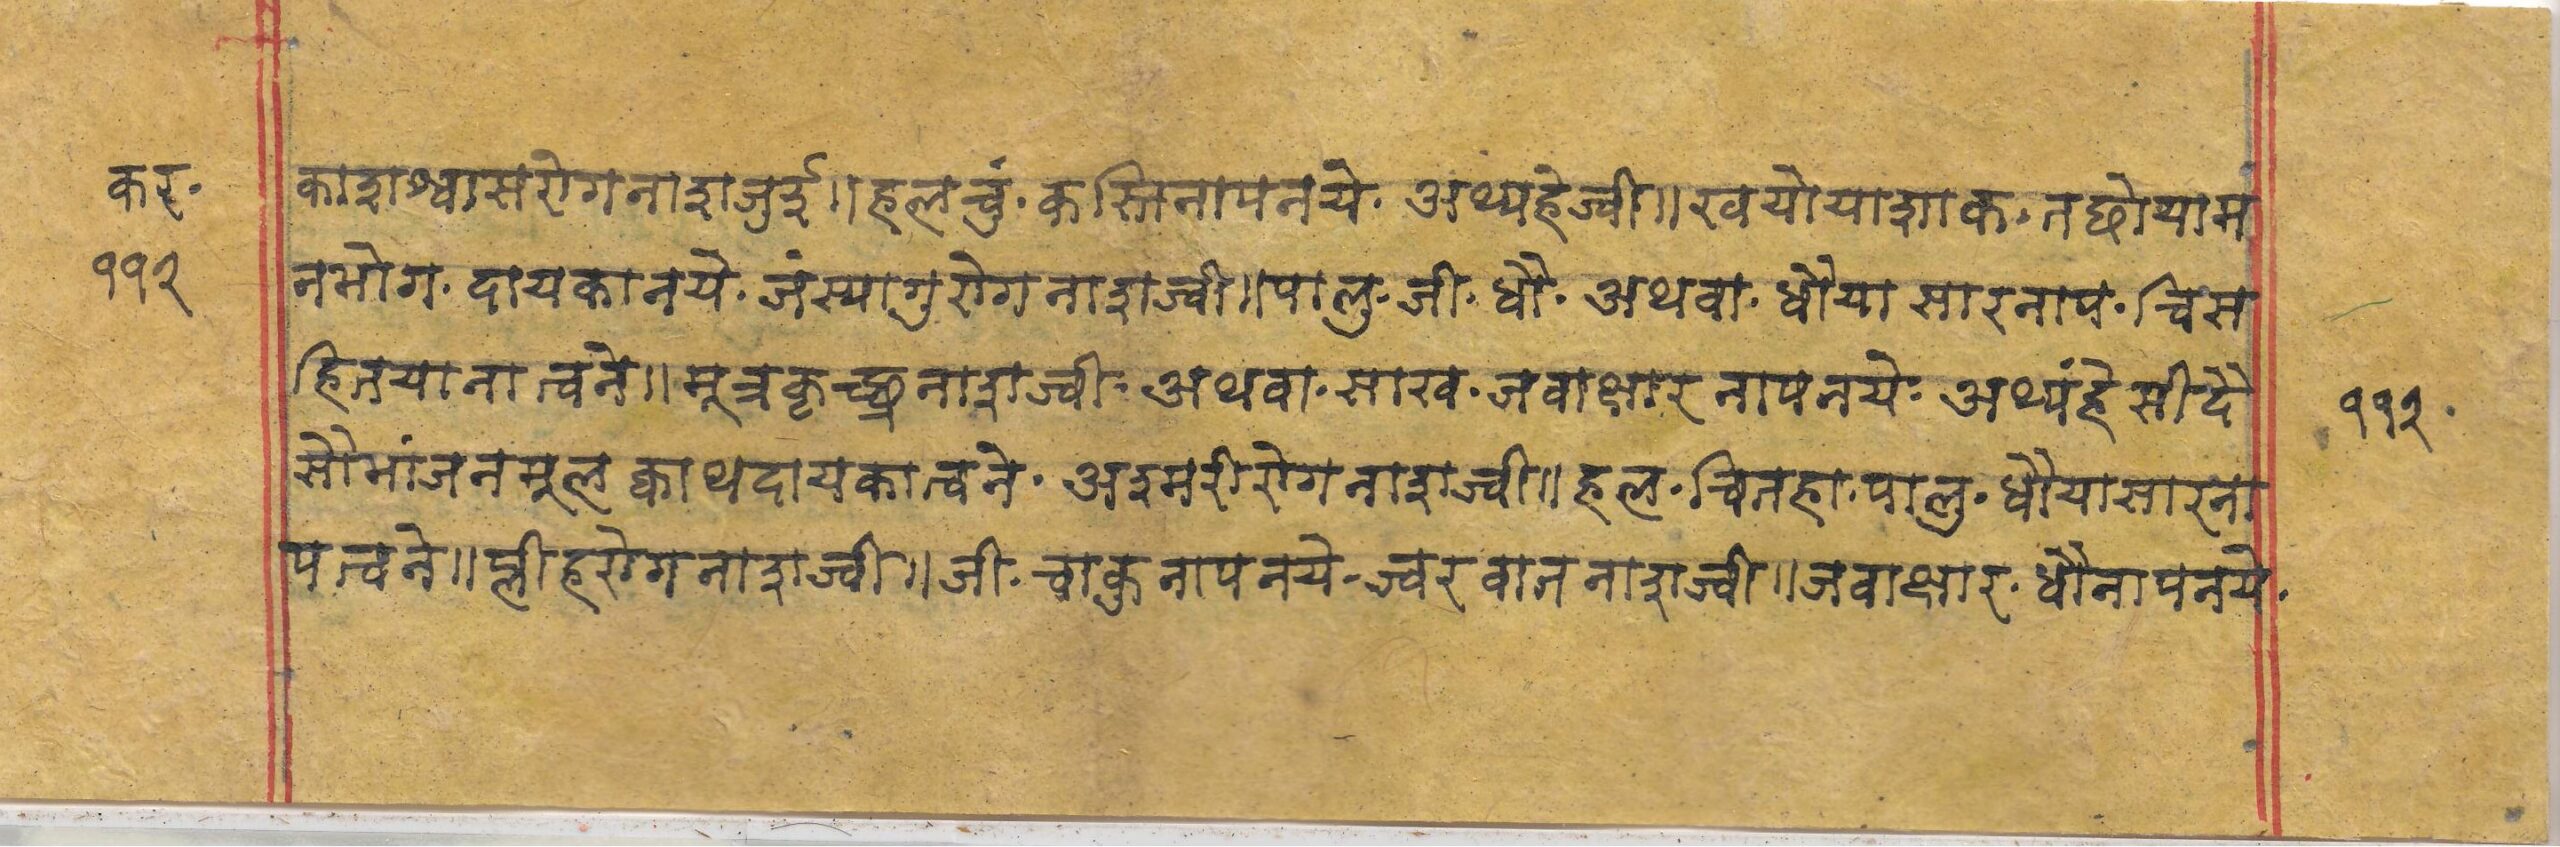 कर·
११२
काशश्वासरोगनाशजुई॥हलचुं·कस्तिनापनये·अथ्यहेज्वी॥खयोयाशाक·तछोयाम
नभोग·दायकानये·जंस्यागुरोगनाशज्वी॥पालु·जी·धौ·अथवा·धौया सारनाप·चिस
हितयानात्वने॥मूत्रकृच्छ्रनाशज्वी·अथवा·साख·जवाक्षारनापनये·अथ्यंहे सीदै
सौभांजनमूलक्वाथदायकात्वने·अश्मरीरोगनाशज्वी॥हल·चितहा·पालु·धौयासारना
पत्वने॥प्लीहरोगनाशज्वी॥जी·चाकुनापनये·ज्वरवातनाशज्वी॥जवाक्षार·धौनापनये·
११२·